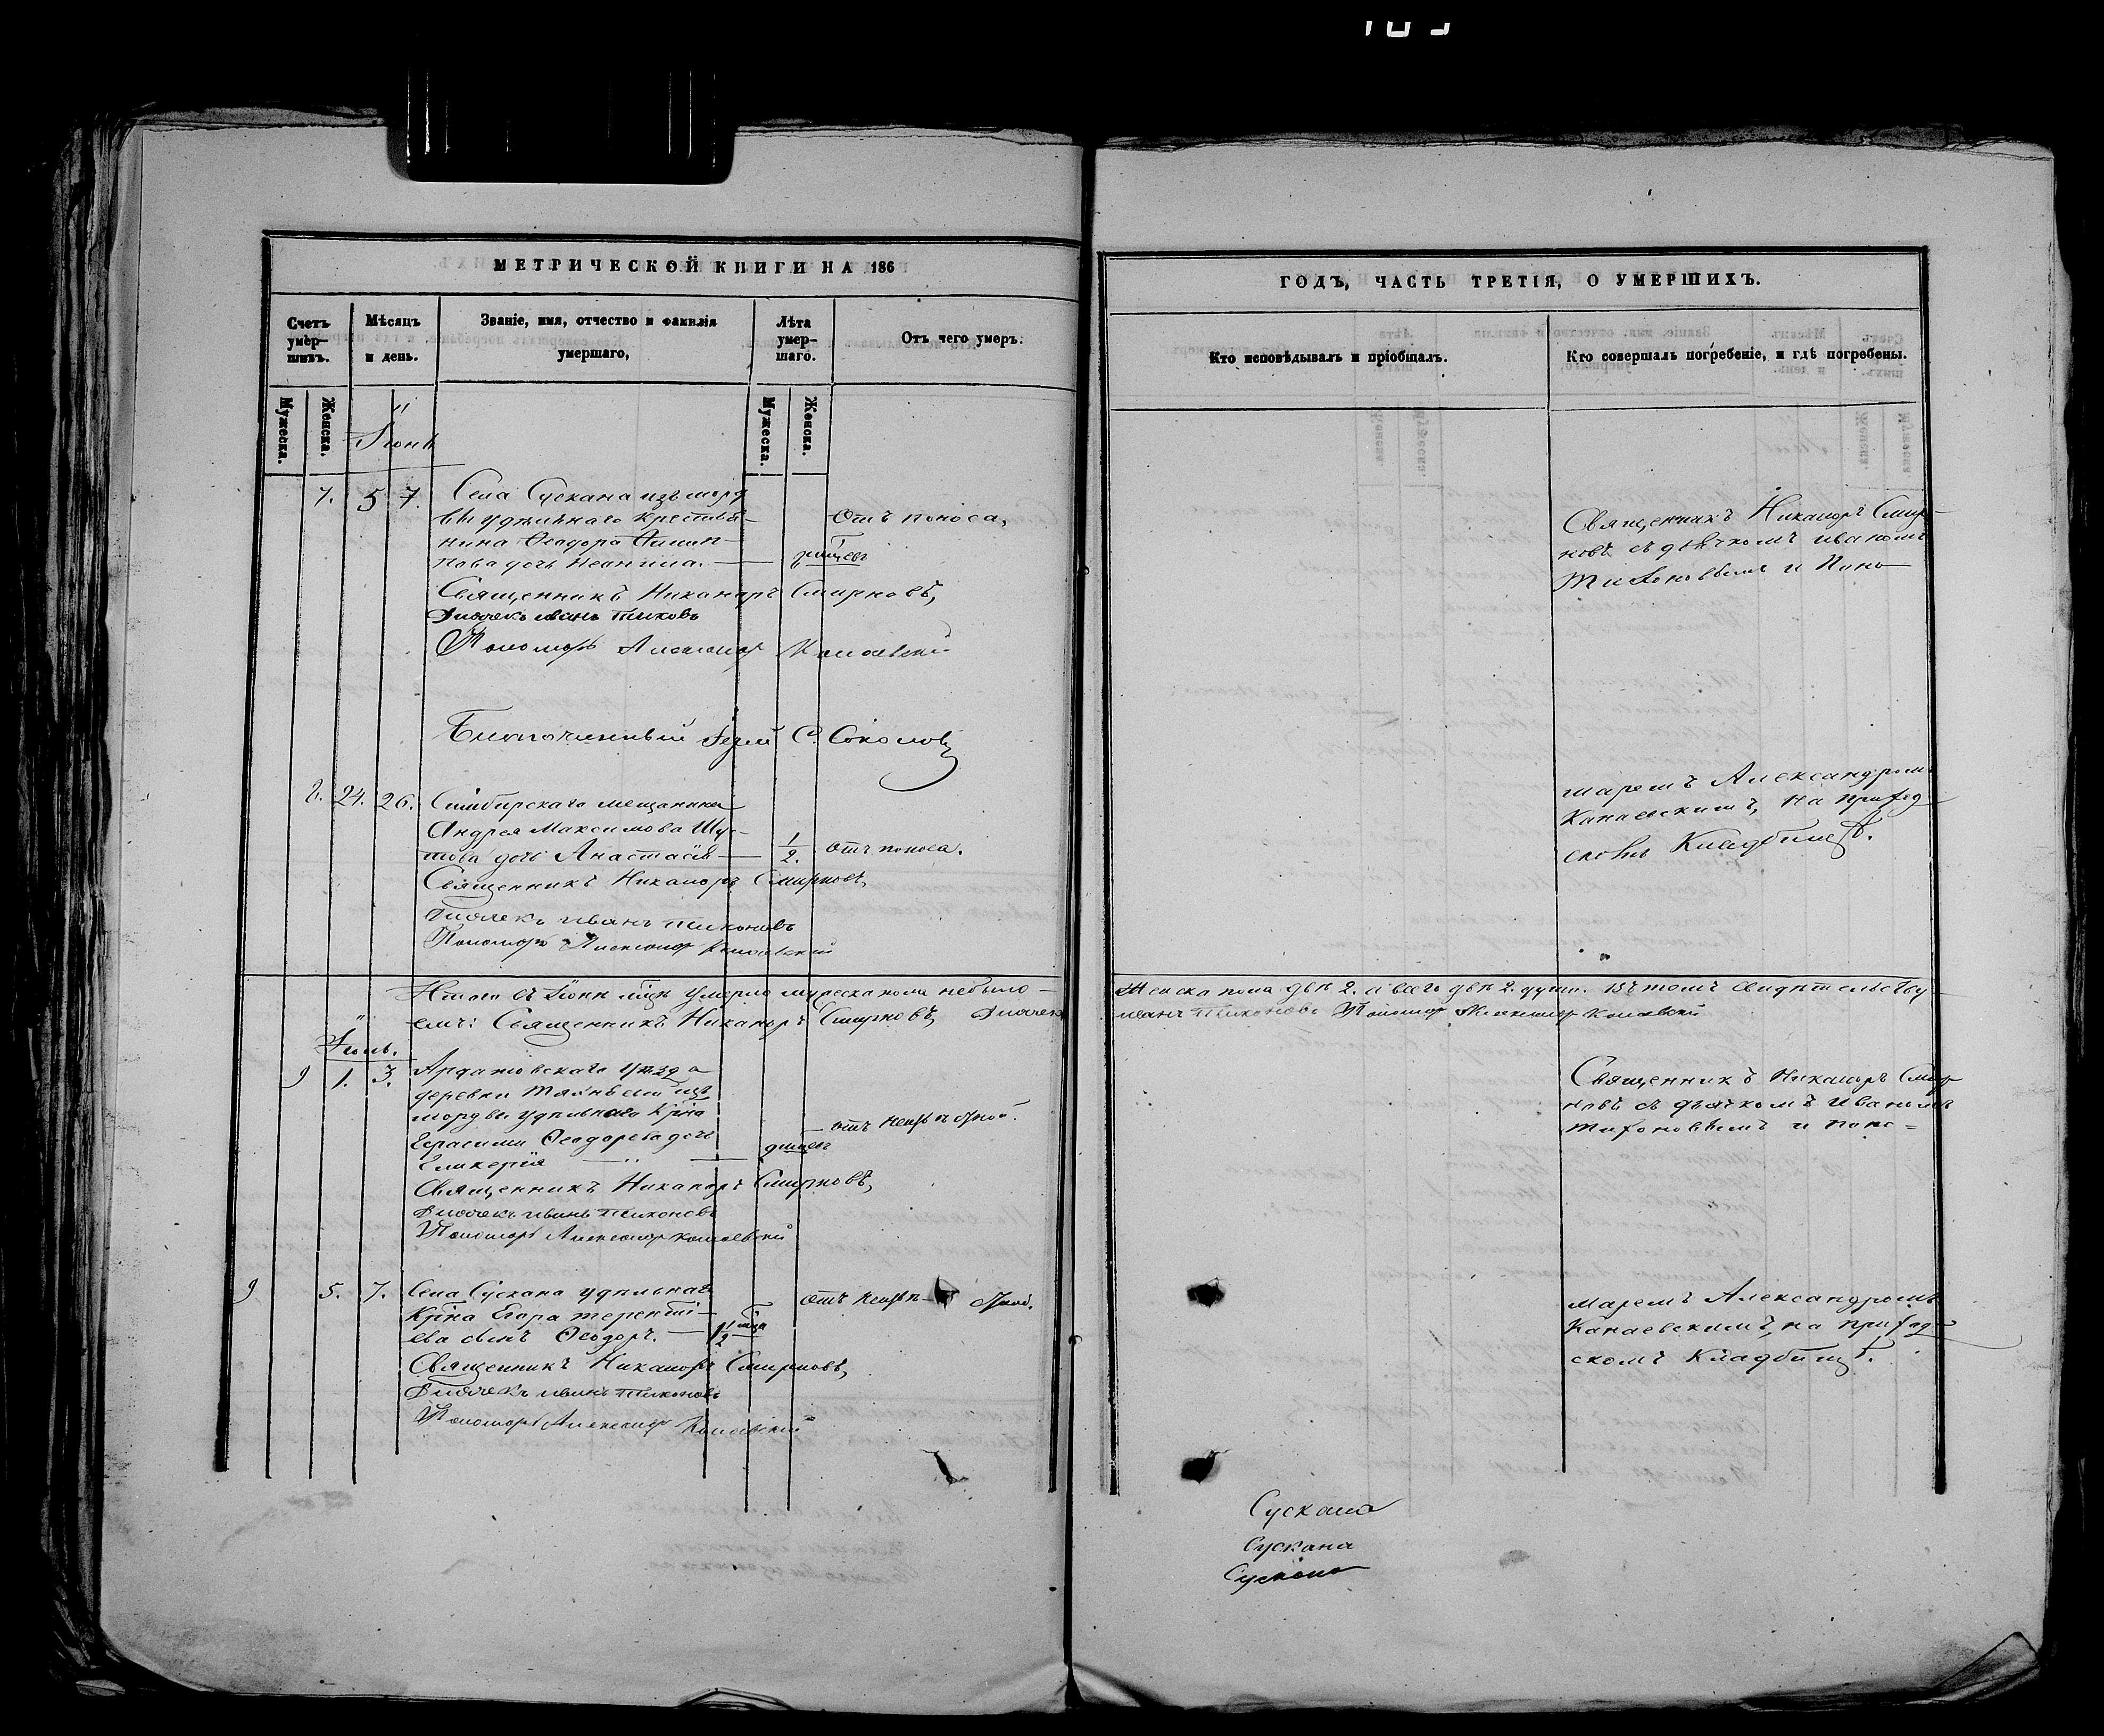 МЕТРИЧЕСКОЙ КНИГИ НА 186
Счетъ умер-шихъ.
Мѣсяцъ и день.
Званіе, имя, отчество и фамилія умершаго,
Лѣта умер-шаго.
Отъ чего умеръ.
Мужеска.
Женска.
Мужеска.
Женска.
Іюнь
7. 5 7. Села Сускана изъ морд
вы удѣльнаго крестья-
нина Ѳеодора Филип-
пова дочь
Отъ поноса,
Священникъ Никаноръ Смирновъ,
Дьячекъ Иванъ Тихоновъ
Пономарь Александръ Канаевскій
Благочинный Іерей С. Соколовъ
8. 24. 26. Симбирскаго мещанина
Андрея Максимова Шус-
това дочь Анастасія — 1/2. отъ поноса.
Священникъ Никаноръ Смирновъ,
Дьячекъ Иванъ Тихоновъ
Пономарь Александръ Канаевскій
Итого въ Іюнѣ мцѣ умерло мужеска пола небыло —
емъ: Священникъ Никаноръ Смирновъ, Дьячекъ
Іюль.
9 1. 3. Ардатовскаго уѣзда
деревни
мордвы удѣльнаго Крна
Герасима Ѳеодорова дочь
Гликерія
отъ
Священникъ Никаноръ Смирновъ,
Дьячекъ Иванъ Тихоновъ
Пономарь Александръ Канаевскій
9 5. 7. Села Сускана удѣльнаго
Крна Егора Терентьі-
ева сынъ Ѳеодоръ. —
отъ
Священникъ Никаноръ Смирновъ,
Дьячекъ Иванъ Тихоновъ
Пономарь Александръ Канаевскій
ГОДЪ, ЧАСТЬ ТРЕТІЯ, О УМЕРШИХЪ.
Кто исповѣдывалъ и пріобщалъ.
Кто совершалъ погребеніе, и гдѣ погребены.
Священникъ Никаноръ Смир-
новъ съ дьячкомъ Иваномъ
Тихоновымъ и Поно-
маремъ Александромъ
Канаевскимъ, на приход
скомъ Кладбищѣ.
Женска пола двѣ 2. а всего двѣ 2. души. Въ томъ свидѣтельству-
Иванъ Тихоновъ Пономарь Александръ Канаевскій
Священникъ Никаноръ Смир
новъ съ дьячкомъ Иваномъ
Тихоновымъ и поно=
маремъ Александромъ
Канаевскимъ, на приход-
скомъ Кладбищѣ.
Сускана
Сускана
Сускана